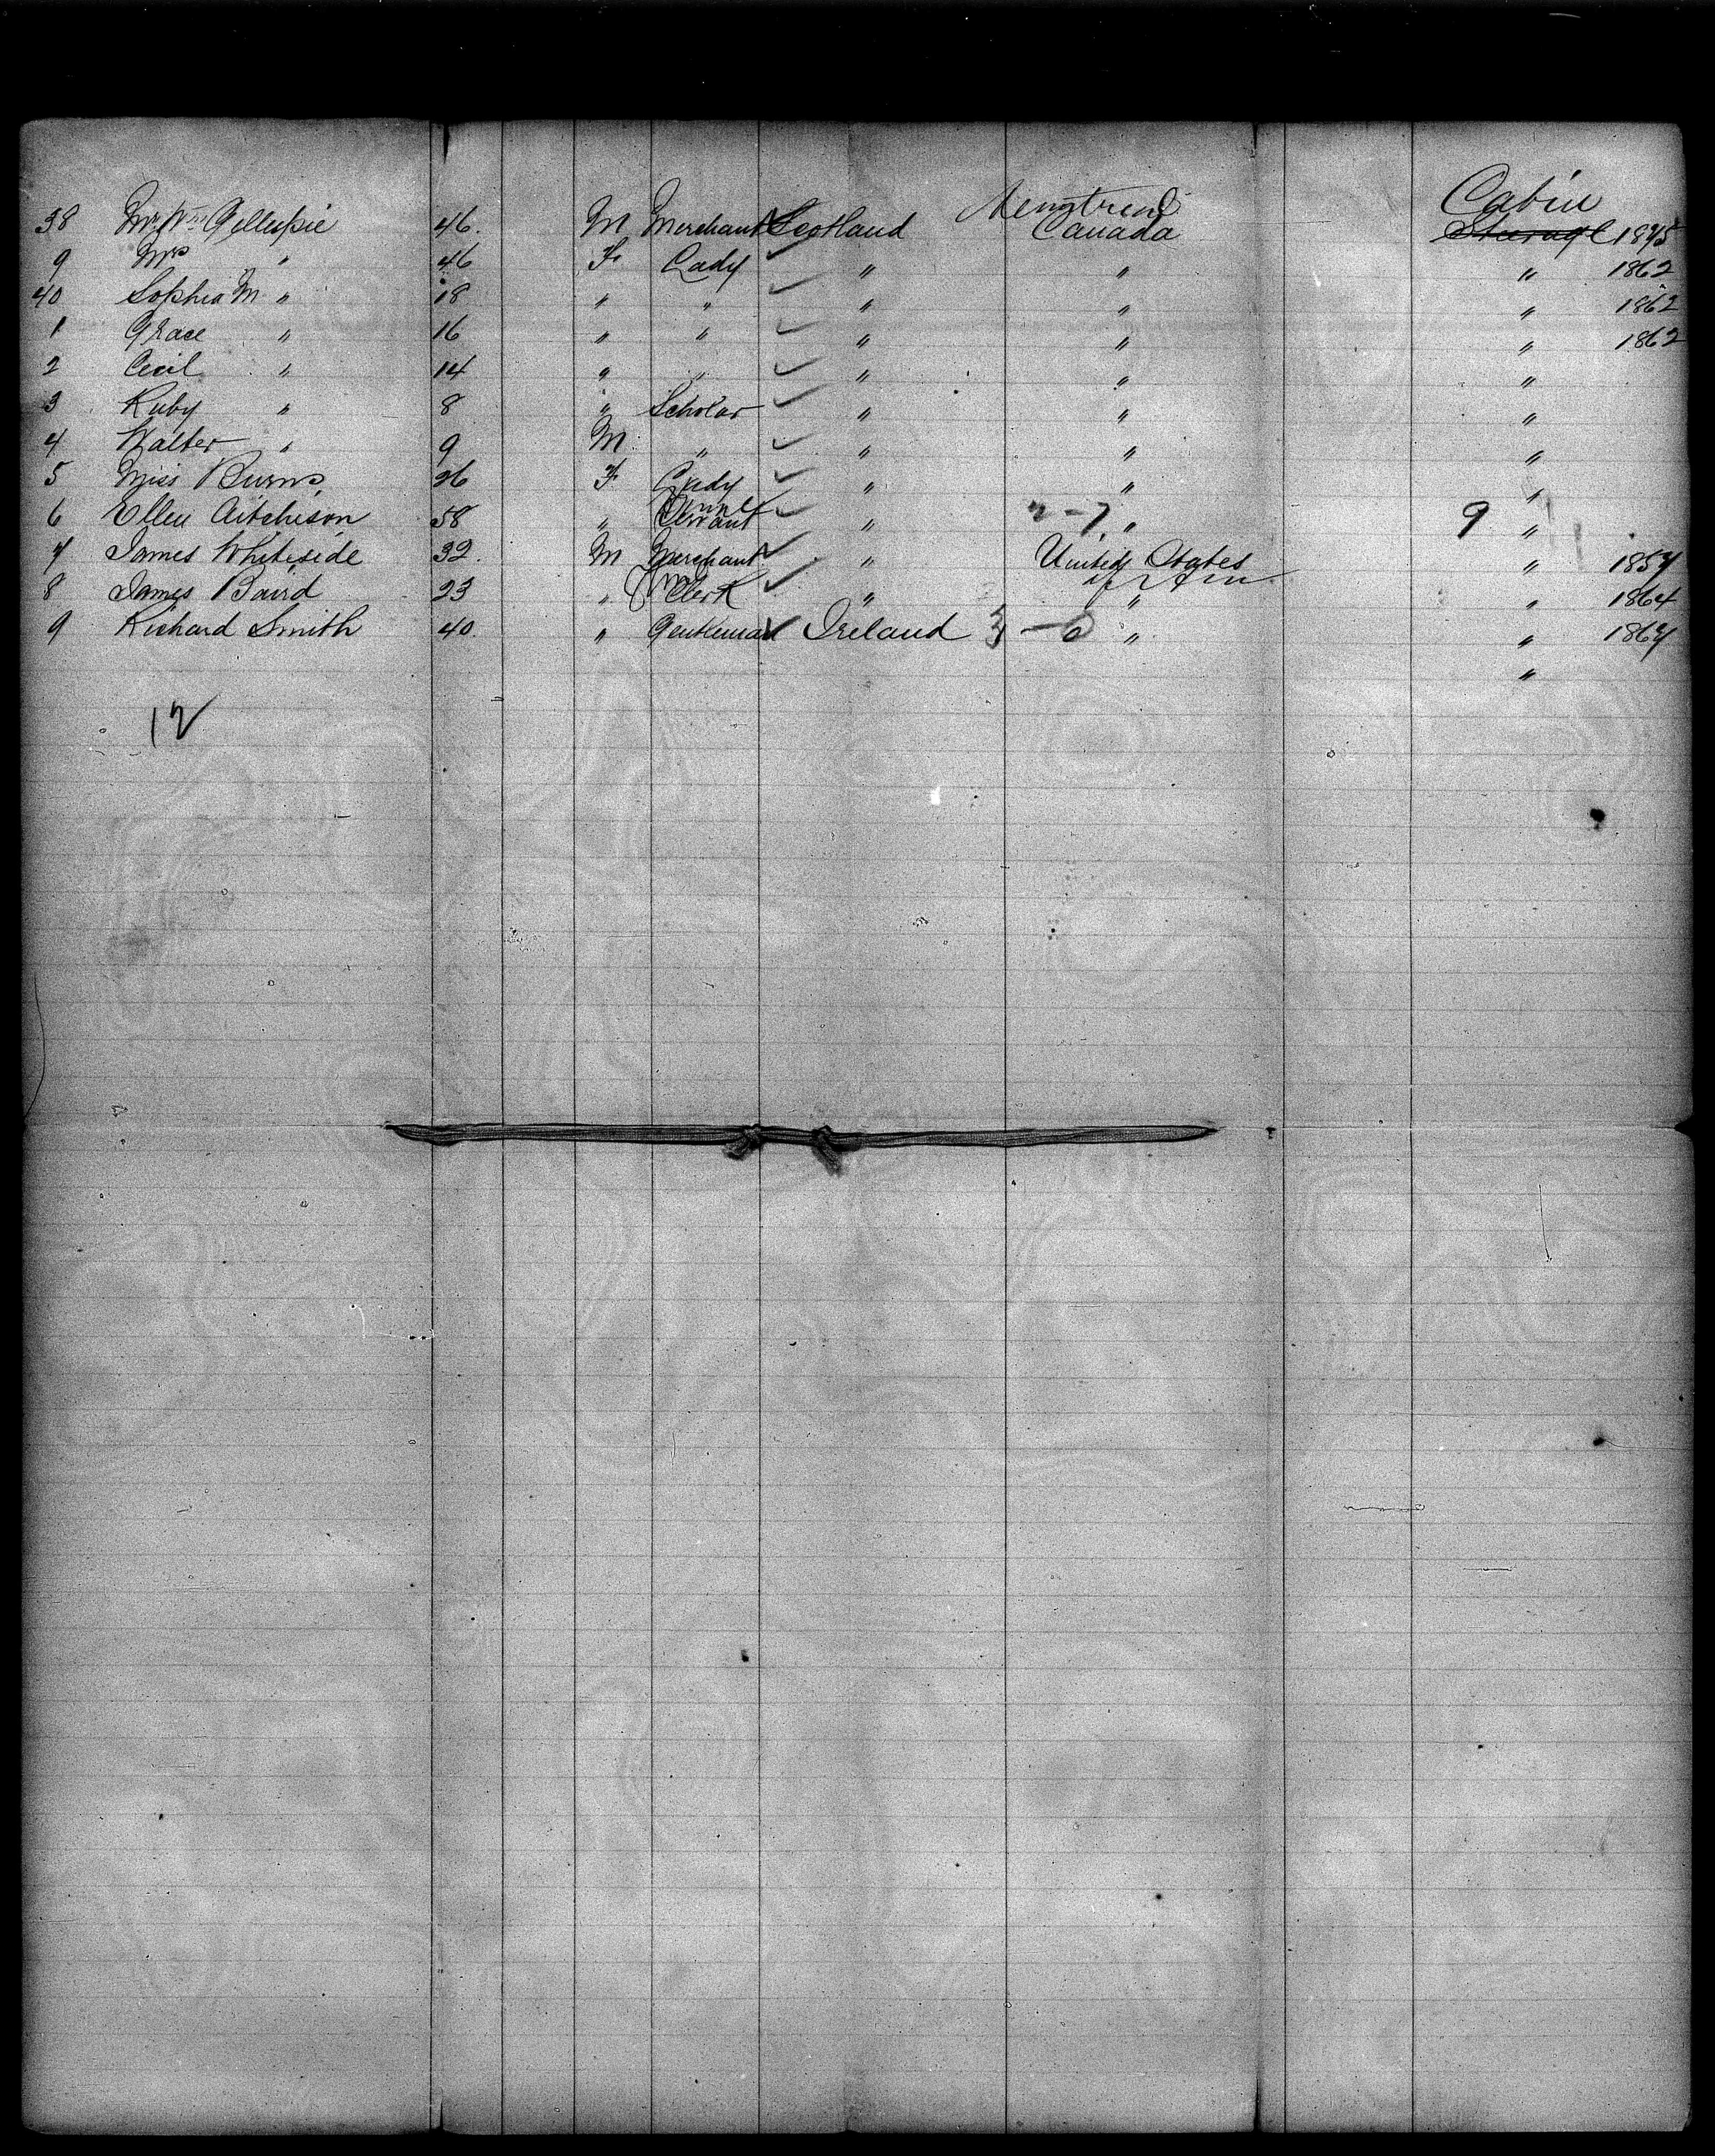 Cabin
38 Mr Wm Gillespie 46. M Merchant Scotland Canada Steerage 1845
9 Mrs " 46 F Lady " " " 1862
40 Sophia M " 18 " " " " " 1862
1 Grace " 16 " " " " " 1862
2 Cecil " 14 " " " " "
3 Ruby " 8 " Scholar " " "
4 Walter " 9 M " " " "
5 Miss Burns 26 F Lady " " "
6 Ellen Aitchison 58 " Servant " 2-7 " 9 "
7 James Whiteside 32. M Merchant " United States " 1857
8 James Baird 23 " Clerk " " " 1864
9 Richard Smith 40. " Gentleman Ireland 3-6 " " 1867
"
12